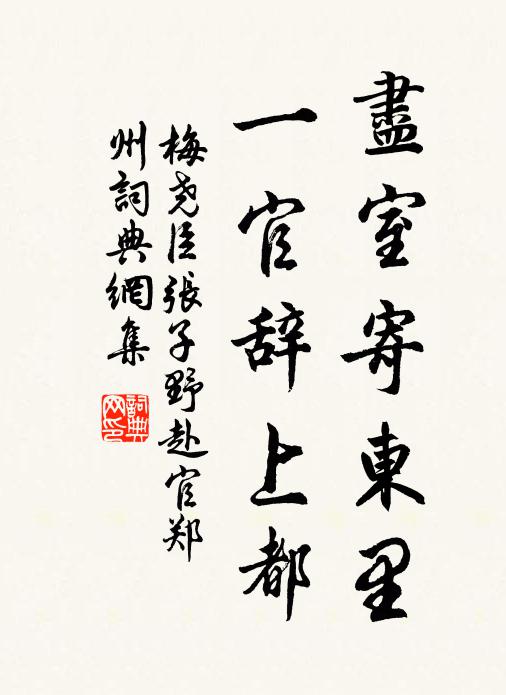 盡室寄東里
一官辞上都
梅尧臣張子野赴官郑
州詞典網集
詞典
网印